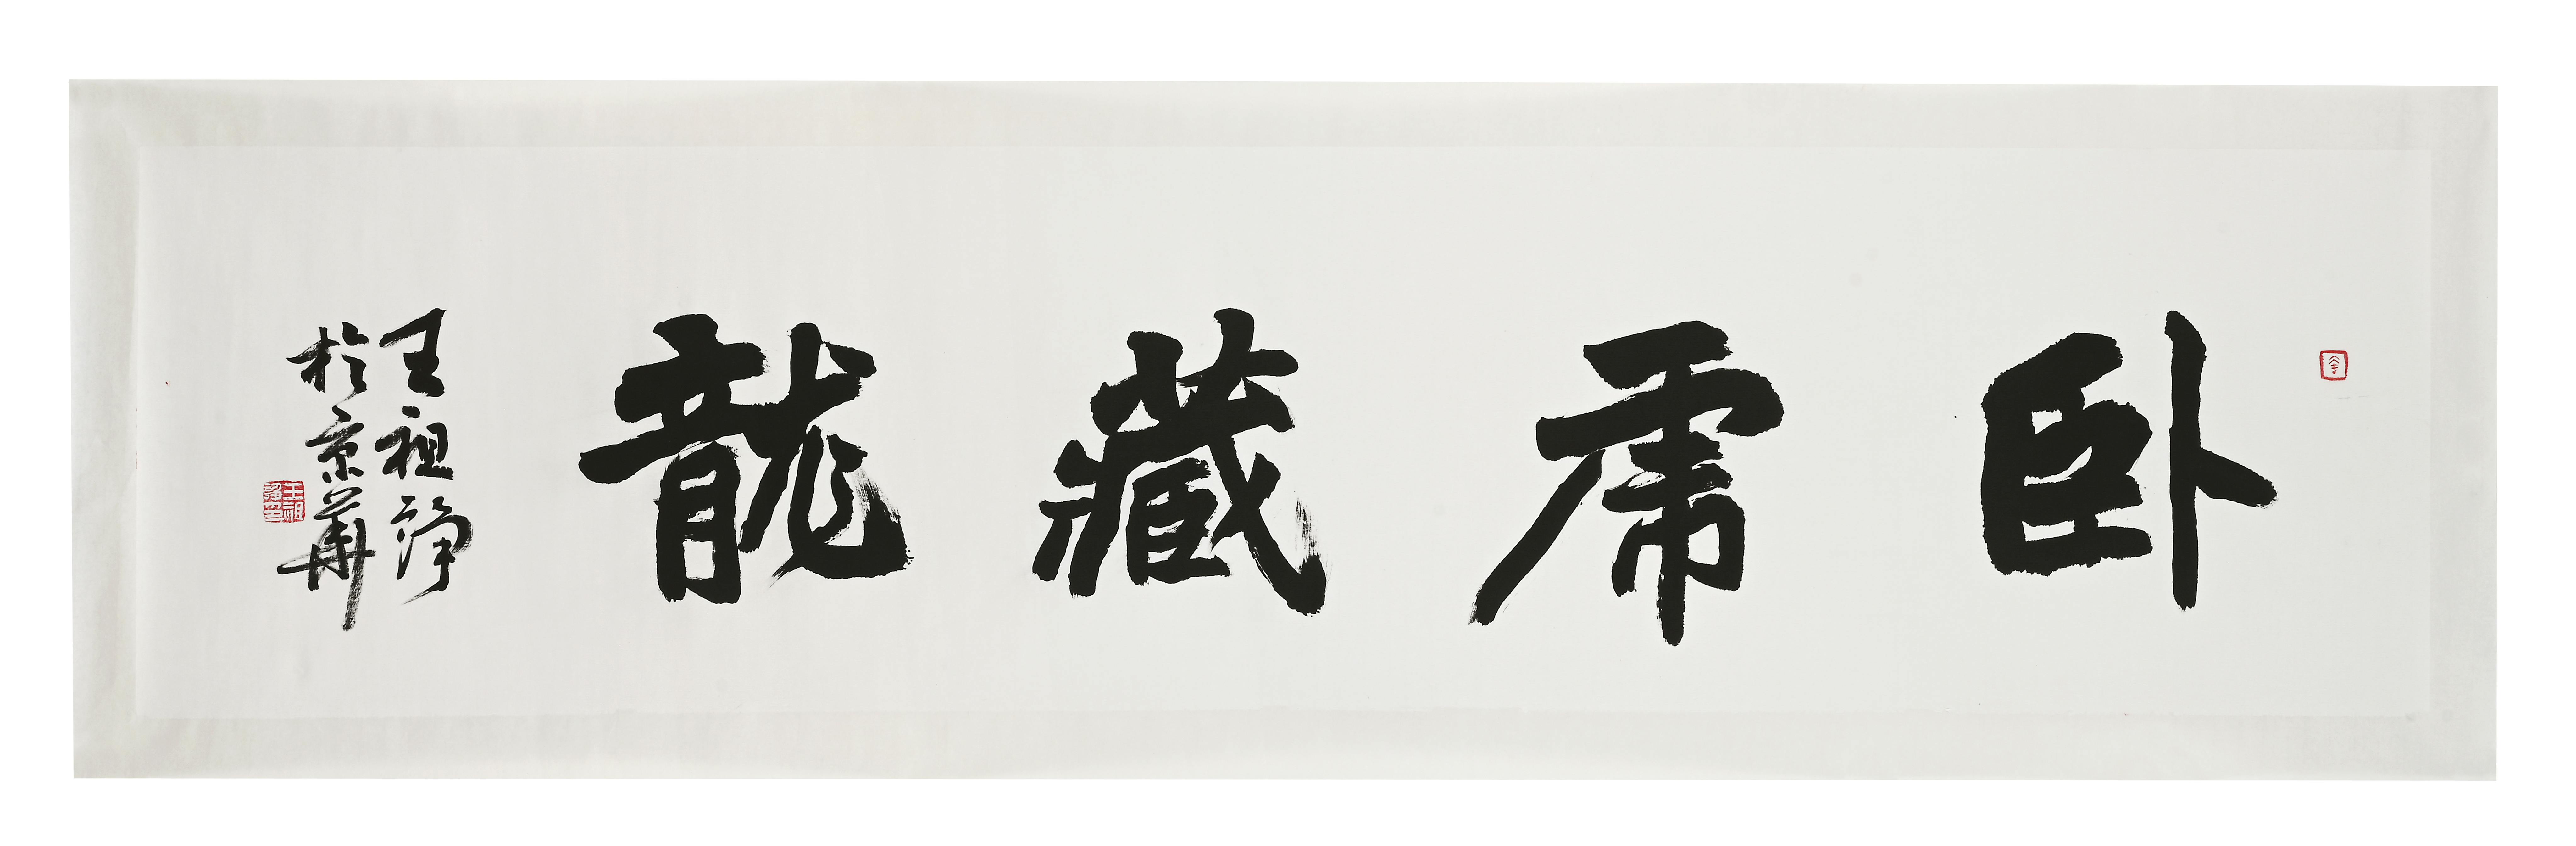 卧虎藏龍
王祖諍
於京華
王祖諍印